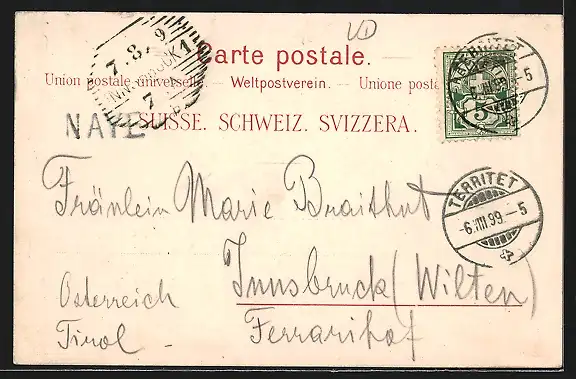 VD
Carte postale.
Union postale universelle. — Weltpostverein. — Unione posta
NAYE
SUISSE. SCHWEIZ. SVIZZERA.
7. 8. 9
INNSBRUCK 1
7
TERRITET
TERRITET
-6.VIII 99.-5
Fräulein Marie Braithut
Innsbruck (Wilten)
Ferrarihof
Österreich
Tirol